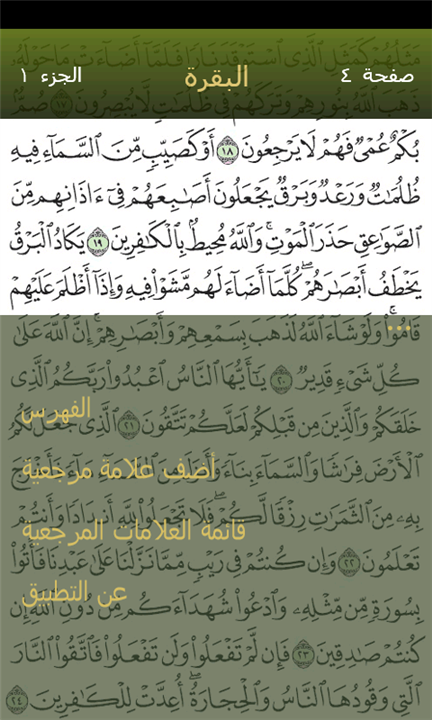 مَثَلُهُمْ كَمَثَلِ ٱلَّذِى ٱسْتَوْقَدَ نَارًا فَلَمَّآ أَضَآءَتْ مَا حَوْلَهُۥ
صفحة ٤
البقرة
الجزء ١
ذَهَبَ ٱللَّهُ بِنُورِهِمْ وَتَرَكَهُمْ فِى ظُلُمَٰتٍ لَّا يُبْصِرُونَ ١٧ صُمٌّۢ
بُكْمٌ عُمْىٌ فَهُمْ لَا يَرْجِعُونَ ١٨ أَوْ كَصَيِّبٍ مِّنَ ٱلسَّمَآءِ فِيهِ
ظُلُمَٰتٌ وَرَعْدٌ وَبَرْقٌ يَجْعَلُونَ أَصَٰبِعَهُمْ فِىٓ ءَاذَانِهِم مِّنَ
ٱلصَّوَٰعِقِ حَذَرَ ٱلْمَوْتِ ۚ وَٱللَّهُ مُحِيطٌۢ بِٱلْكَٰفِرِينَ ١٩ يَكَادُ ٱلْبَرْقُ
يَخْطَفُ أَبْصَٰرَهُمْ ۖ كُلَّمَآ أَضَآءَ لَهُم مَّشَوْا۟ فِيهِ وَإِذَآ أَظْلَمَ عَلَيْهِمْ
قَامُوا۟ ۚ وَلَوْ شَآءَ ٱللَّهُ لَذَهَبَ بِسَمْعِهِمْ وَأَبْصَٰرِهِمْ ۚ إِنَّ ٱللَّهَ عَلَىٰ
...
كُلِّ شَىْءٍ قَدِيرٌ ٢٠ يَٰٓأَيُّهَا ٱلنَّاسُ ٱعْبُدُوا۟ رَبَّكُمُ ٱلَّذِى
خَلَقَكُمْ وَٱلَّذِينَ مِن قَبْلِكُمْ لَعَلَّكُمْ تَتَّقُونَ ٢١ ٱلَّذِى جَعَلَ لَكُمُ
الفهرس
ٱلْأَرْضَ فِرَٰشًا وَٱلسَّمَآءَ بِنَآءً وَأَنزَلَ مِنَ ٱلسَّمَآءِ مَآءً فَأَخْرَجَ
أضف علامة مرجعية
بِهِۦ مِنَ ٱلثَّمَرَٰتِ رِزْقًا لَّكُمْ ۖ فَلَا تَجْعَلُوا۟ لِلَّهِ أَندَادًا وَأَنتُمْ
قائمة العلامات المرجعية
تَعْلَمُونَ ٢٢ وَإِن كُنتُمْ فِى رَيْبٍ مِّمَّا نَزَّلْنَا عَلَىٰ عَبْدِنَا فَأْتُوا۟
عن التطبيق
بِسُورَةٍ مِّن مِّثْلِهِۦ وَٱدْعُوا۟ شُهَدَآءَكُم مِّن دُونِ ٱللَّهِ إِن
كُنتُمْ صَٰدِقِينَ ٢٣ فَإِن لَّمْ تَفْعَلُوا۟ وَلَن تَفْعَلُوا۟ فَٱتَّقُوا۟ ٱلنَّارَ
ٱلَّتِى وَقُودُهَا ٱلنَّاسُ وَٱلْحِجَارَةُ ۖ أُعِدَّتْ لِلْكَٰفِرِينَ ٢٤